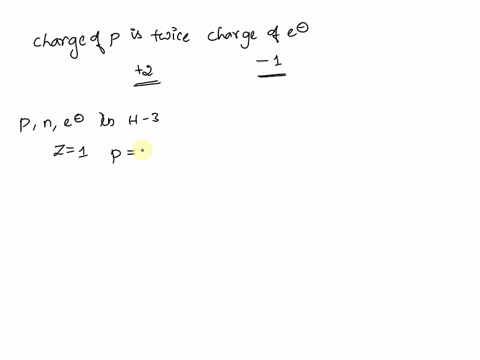 charge of p is twice charge of e⊖
+2 -1
p, n, e⊖ in H-3
Z=1 p=